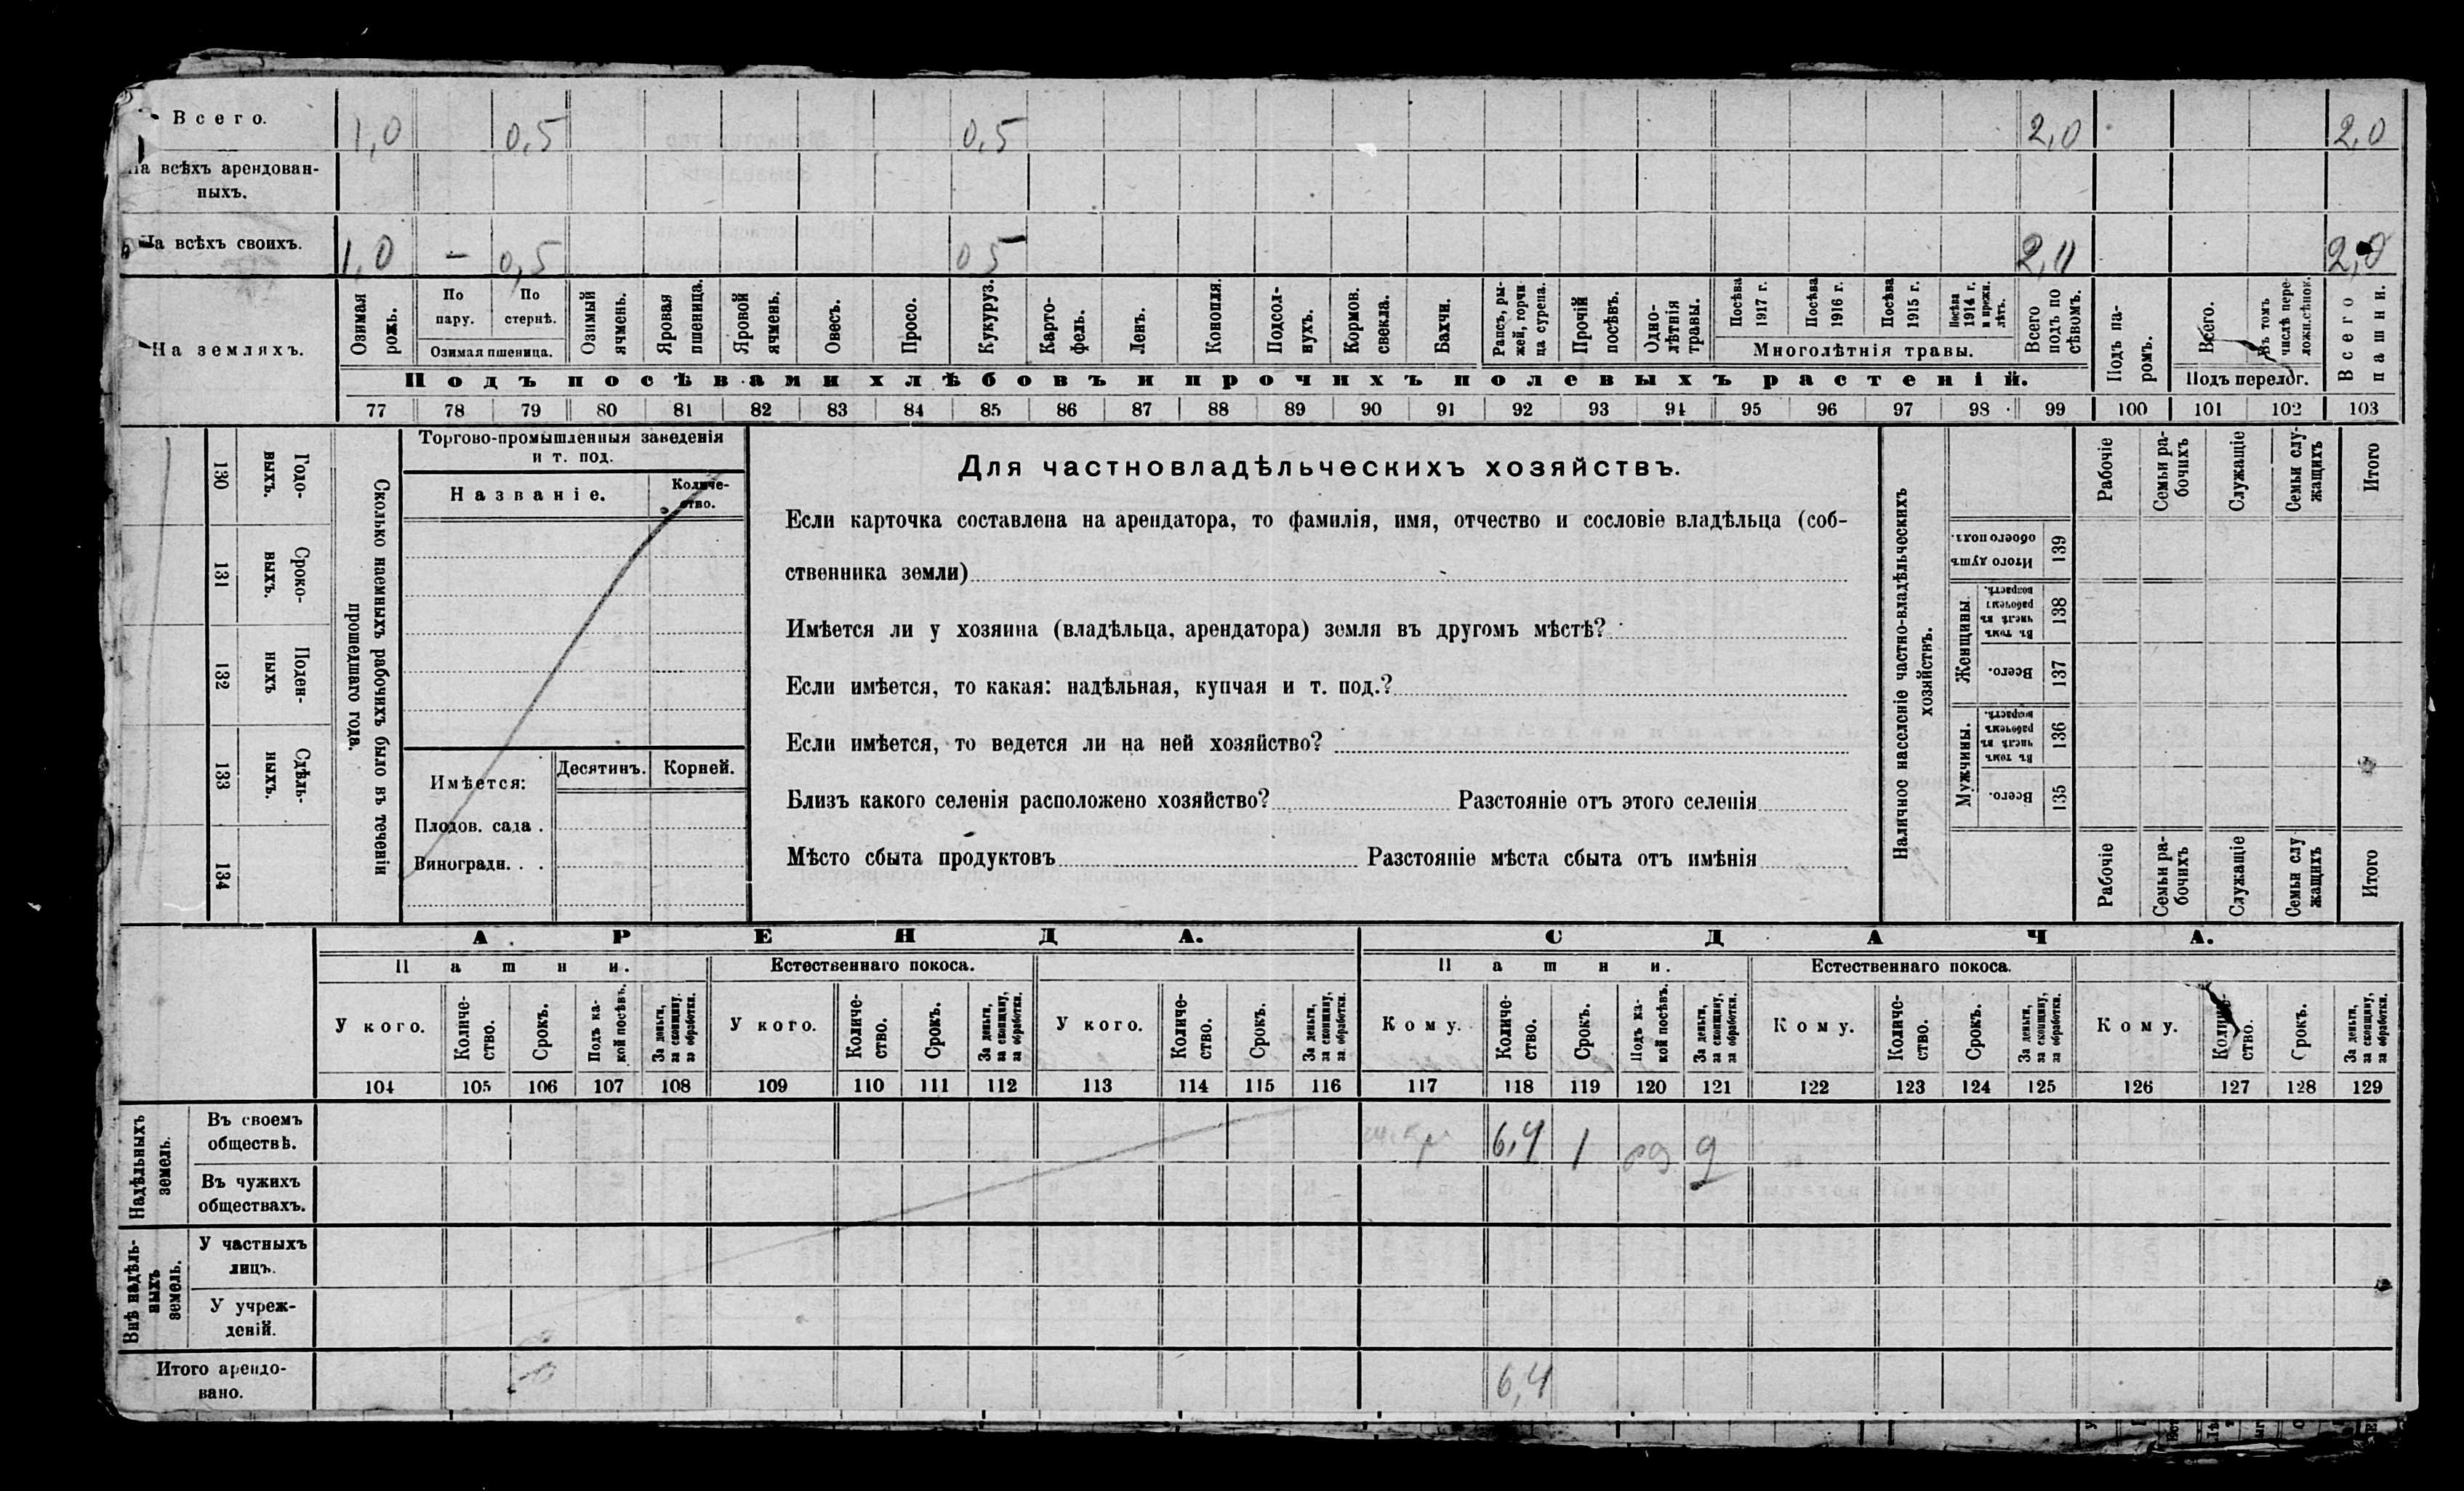 Всего. 1,0 0,5 0,5 2,0 2,0
На всѣхъ арендован-
ныхъ.
На всѣхъ своихъ. 1,0 – 0,5 0 5 2,0 2,0
На земляхъ.
Озимая рожь.
По пару.
По стернѣ.
Озимая пшеница.
Озимый ячмень.
Яровая пшеница.
Яровой ячмень.
Овесъ.
Просо.
Кукуруз.
Карто-
фель.
Ленъ.
Конопля.
Подсол-
нухъ.
Кормов. свекла.
Бахчи.
Рапсъ, ры-
жей, горчи-
ца сурепа.
Прочій посѣвъ.
Одно-
лѣтнія
травы.
Посѣва 1917 г.
Посѣва 1916 г.
Посѣва 1915 г.
Посѣва 1914 г. и прежн. лѣтъ.
Многолѣтнія травы.
Всего подъ по
сѣвомъ.
Подъ посѣвами хлѣбовъ и прочихъ полевыхъ растеній.
Подъ па-
ромъ.
Всего.
Въ томъ числѣ пере-
ложн. сѣнок.
Подъ перелог.
Всего пашни.
77 78 79 80 81 82 83 84 85 86 87 88 89 90 91 92 93 94 95 96 97 98 99 100 101 102 103
130 Годо-
выхъ.
131 Сроко-
выхъ.
132 Поден-
ныхъ
133 Сдѣль-
ныхъ.
134
Сколько наемныхъ рабочихъ было въ теченіи
прошедшаго года.
Торгово-промышленныя заведенія
и т. под.
Названіе.
Количе-
ство.
Имѣется: Десятинъ. Корней.
Плодов. сада .
Виноградн. . .
Для частновладѣльческихъ хозяйствъ.
Если карточка составлена на арендатора, то фамилія, имя, отчество и сословіе владѣльца (соб-
ственника земли)
Имѣется ли у хозяина (владѣльца, арендатора) земля въ другомъ мѣстѣ?
Если имѣется, то какая: надѣльная, купчая и т. под.?
Если имѣется, то ведется ли на ней хозяйство?
Близъ какого селенія расположено хозяйство? Разстояніе отъ этого селенія
Мѣсто сбыта продуктовъ Разстояніе мѣста сбыта отъ имѣнія
Наличное населеніе частно-владѣльческихъ
хозяйствъ.
Рабочіе
Семьи ра-
бочихъ
Служащіе
Семьи слу-
жащихъ
Итого
Итого душъ обоего пола. 139
Женщины.
Въ томъ числѣ въ рабочемъ возрастѣ. 138
Всего. 137
Мужчины.
Въ томъ числѣ въ рабочемъ возрастѣ. 136
Всего. 135
Рабочіе
Семьи ра-
бочихъ
Служащіе
Семьи слу
жащихъ
Итого
АРЕНДА. СДАЧА.
Пашни. Естественнаго покоса. Пашни. Естественнаго покоса.
У кого.
Количе-
ство.
Срокъ.
Подъ ка-
кой посѣвъ.
За деньги,
за скопщину,
за обработки.
У кого.
Количе-
ство.
Срокъ.
За деньги,
за скопщину,
за обработки.
У кого.
Количе-
ство.
Срокъ.
За деньги,
за скопщину,
за обработки.
Кому.
Количе-
ство.
Срокъ.
Подъ ка-
кой посѣвъ.
За деньги,
за скопщину,
за обработки.
Кому.
Количе-
ство.
Срокъ.
За деньги,
за скопщину,
за обработки.
Кому.
Количе-
ство.
Срокъ.
За деньги,
за скопщину,
за обработки.
104 105 106 107 108 109 110 111 112 113 114 115 116 117 118 119 120 121 122 123 124 125 126 127 128 129
Надѣльныхъ
земель.
Въ своемъ
обществѣ. 6,4 1
Въ чужихъ
обществахъ.
Внѣ надѣль-
ныхъ
земель.
У частныхъ
лицъ.
У учреж-
деній.
Итого арендо-
вано. 6,4